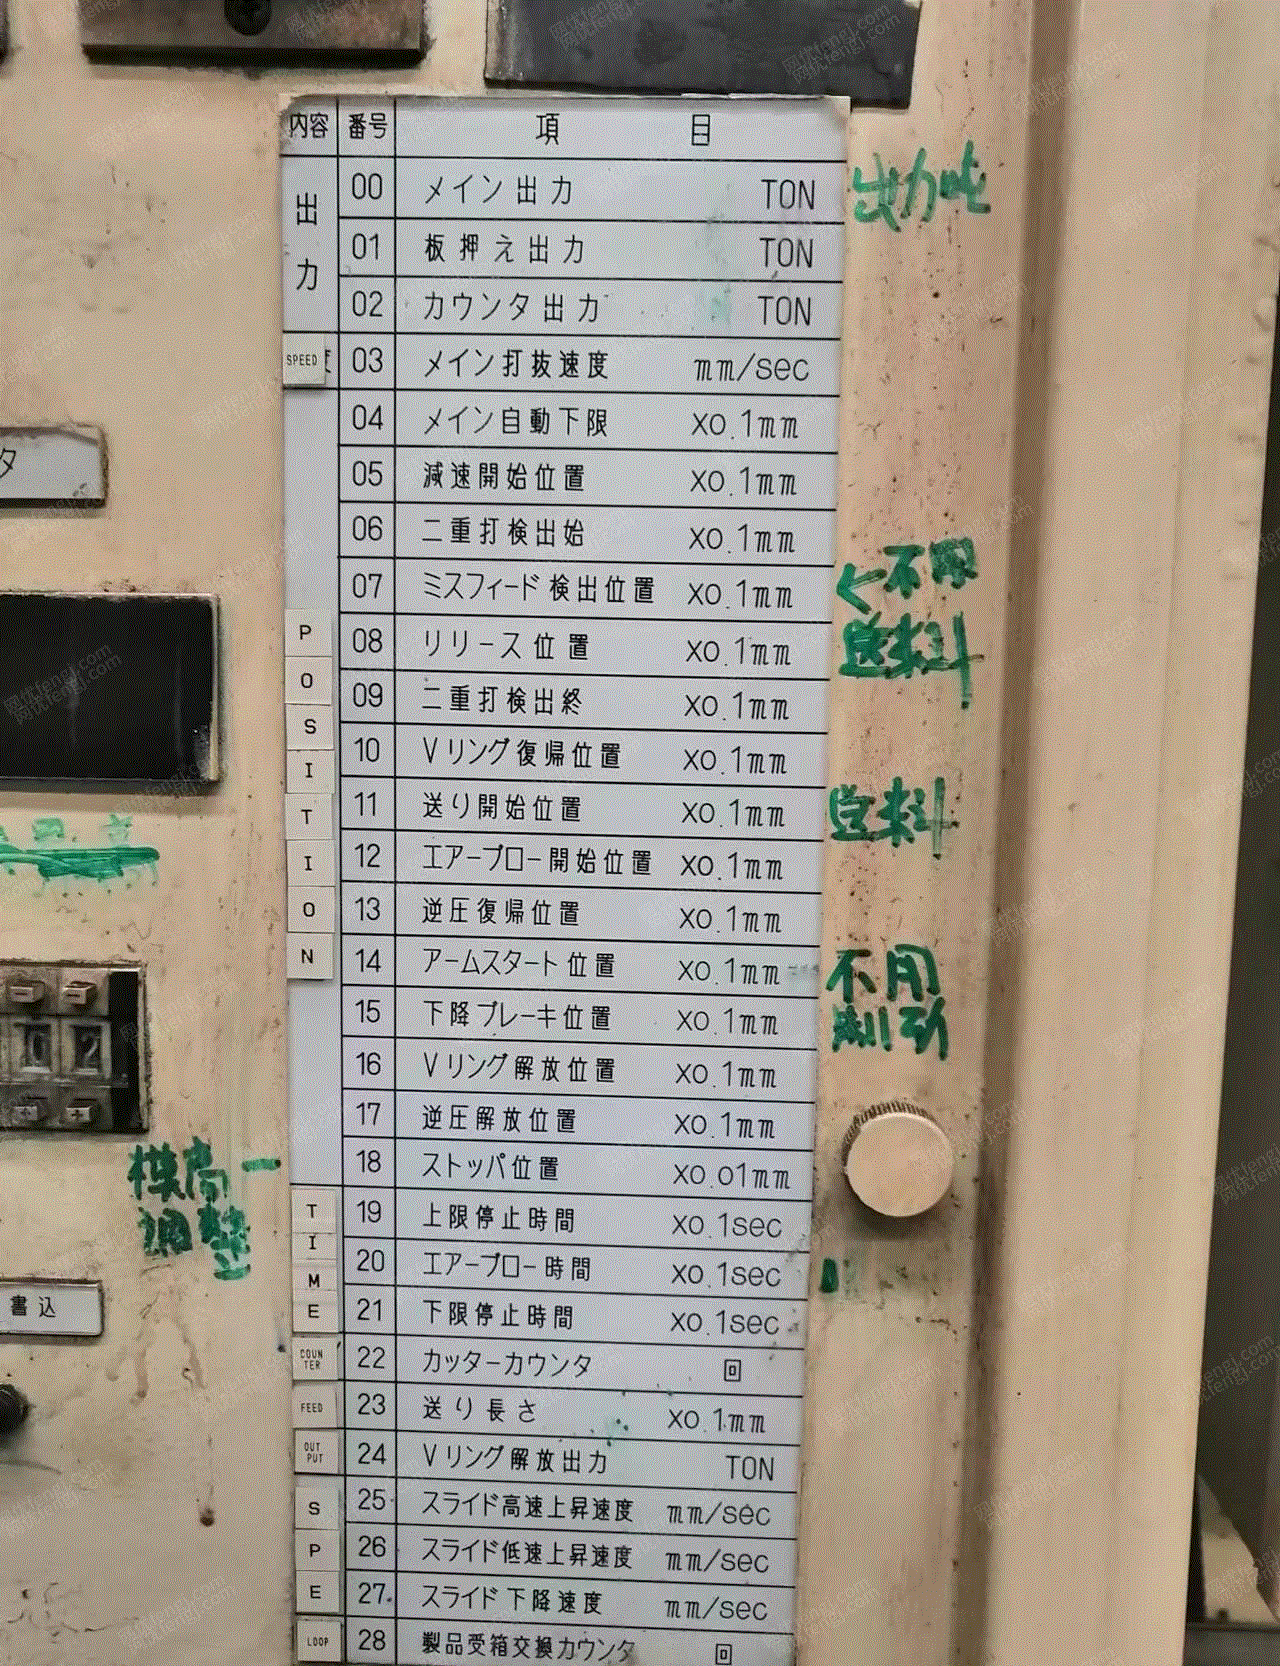 内容 番号 項目
出力 00 メイン出力 TON 出力吨
01 板押え出力 TON
02 カウンタ出力 TON
SPEED 03 メイン打抜速度 mm/sec
POSITION
04 メイン自動下限 x0.1mm
05 減速開始位置 x0.1mm
06 二重打検出始 x0.1mm
07 ミスフィード検出位置 x0.1mm 不用
08 リリース位置 x0.1mm 送料
09 二重打検出終 x0.1mm
10 Vリング復帰位置 x0.1mm
11 送り開始位置 x0.1mm 送料
12 エアーブロー開始位置 x0.1mm
13 逆圧復帰位置 x0.1mm
14 アームスタート位置 x0.1mm 不用
15 下降ブレーキ位置 x0.1mm
16 Vリング解放位置 x0.1mm
17 逆圧解放位置 x0.1mm
18 ストッパ位置 x0.01mm
TIME
19 上限停止時間 x0.1sec
20 エアーブロー時間 x0.1sec
21 下限停止時間 x0.1sec
COUNTER 22 カッターカウンタ 回
FEED 23 送り長さ x0.1mm
OUTPUT 24 Vリング解放出力 TON
SPE
25 スライド高速上昇速度 mm/sec
26 スライド低速上昇速度 mm/sec
27 スライド下降速度 mm/sec
LOOP 28 製品受箱交換カウンタ 回
タ
02
模高
调整
書込
网优fengj.com